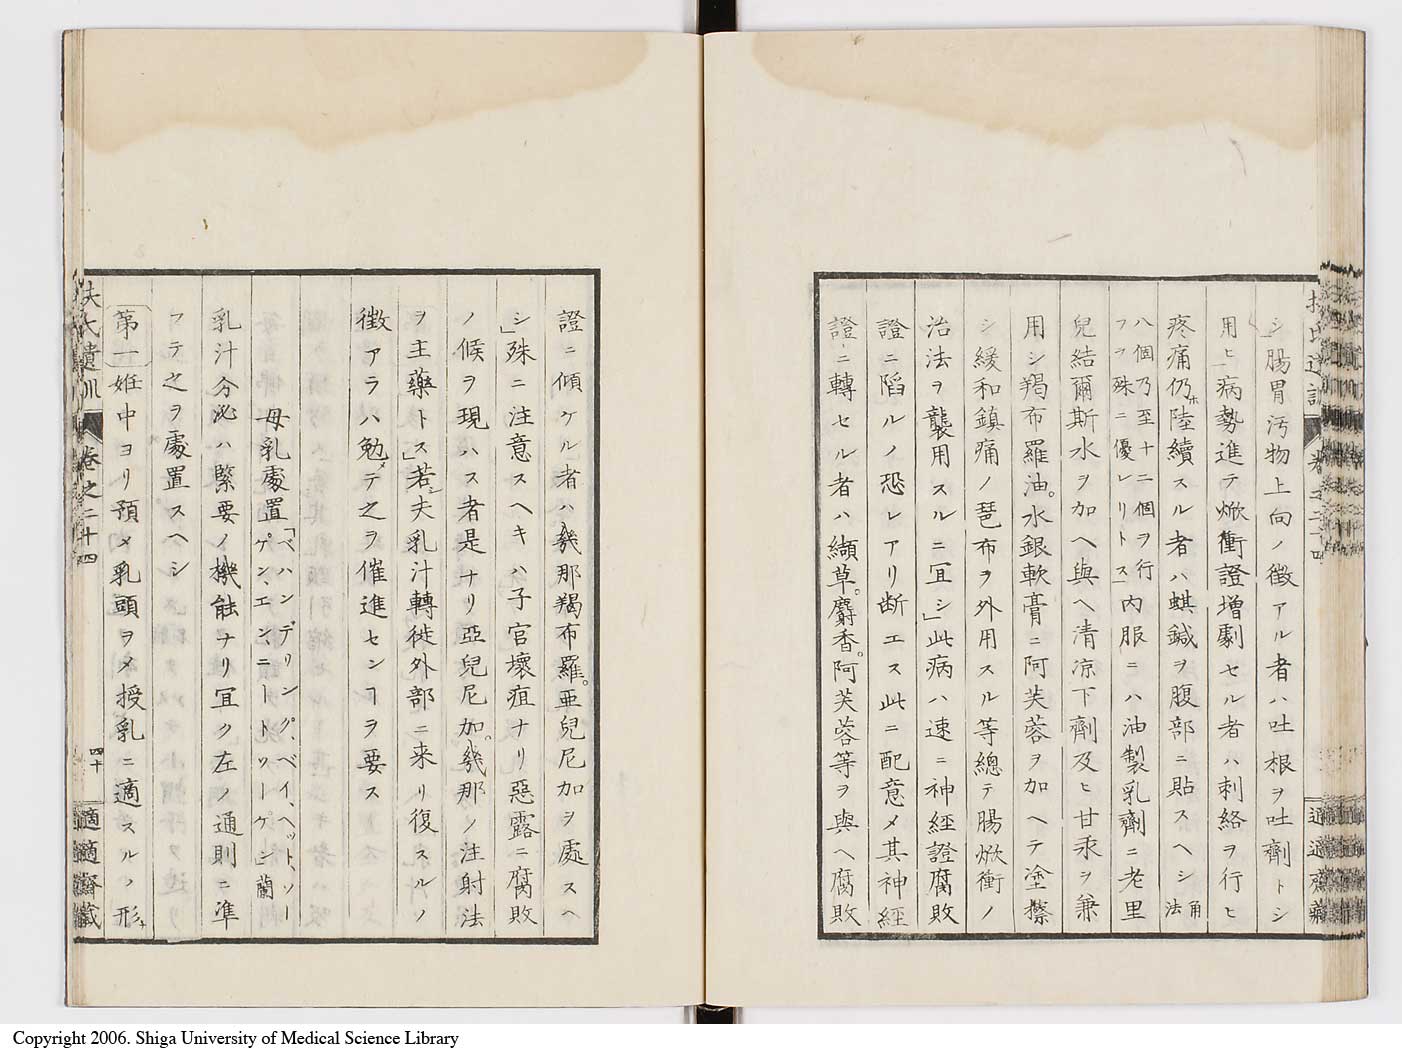 シ」腸胃汚物上向ノ徴アル者ハ吐根ヲ吐劑トシ
用ヒ」病勢進テ焮衝證増劇セル者ハ刺絡ヲ行ヒ
疼痛仍ホ陸續スル者ハ蜞鍼ヲ腹部ニ貼スヘシ角法
八個乃至十二個ヲ行フヲ殊ニ優レリトス」内服ニハ油製乳劑ニ老里
兒結爾斯水ヲ加ヘ與ヘ清凉下劑及ヒ甘汞ヲ兼
用シ羯布羅油。水銀軟膏ニ阿芙蓉ヲ加ヘテ塗擦
シ緩和鎮痛ノ琶布ヲ外用スル等總テ腸焮衝ノ
治法ヲ襲用スルニ冝シ」此病ハ速ニ神經證腐敗
證ニ陷ルノ恐レアリ断エス此ニ配意メ其神經
證ニ轉セル者ハ纈草。麝香。阿芙蓉等ヲ與ヘ腐敗
證ニ傾ケル者ハ幾那羯布羅。亜兒尼加ヲ處スヘ
シ」殊ニ注意スヘキハ子官壞疽ナリ惡露ニ腐敗
ノ候ヲ現ハス者是ナリ亞兒尼加。幾那ノ注射法
ヲ主藥トス」若シ夫乳汁轉徙外部ニ来リ復スルノ
徴アラハ勉メテ之ヲ催進センヿヲ要ス
母乳處置「ベハンデリング、ベイ、ヘット、ソーゲン、エン、ニートソーゲン蘭
乳汁分泌ハ緊要ノ機能ナリ冝ク左ノ通則ニ準
フテ之ヲ處置スヘシ
第一姙中ヨリ預メ乳頭ヲメ授乳ニ適スルノ形ナ
扶氏遺訓 卷之二十四 四十 適適齋藏